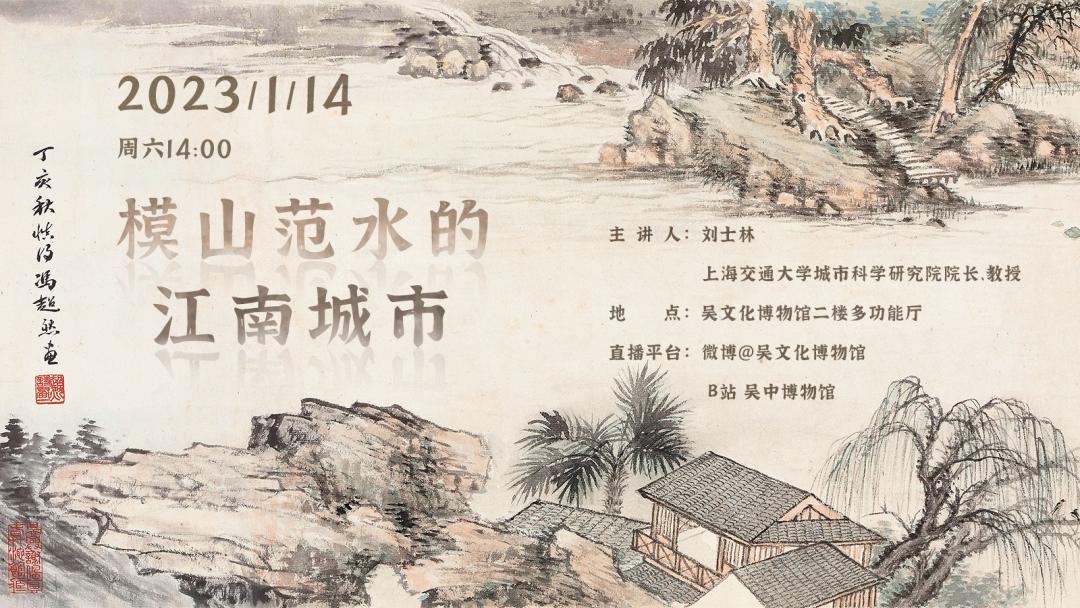 2023/1/14
周六14:00
模山范水的
江南城市
主讲人：刘士林
上海交通大学城市科学研究院院长、教授
地　　点：吴文化博物馆二楼多功能厅
直播平台：微博@吴文化博物馆
B站 吴中博物馆
丁亥秋慎得冯超然画